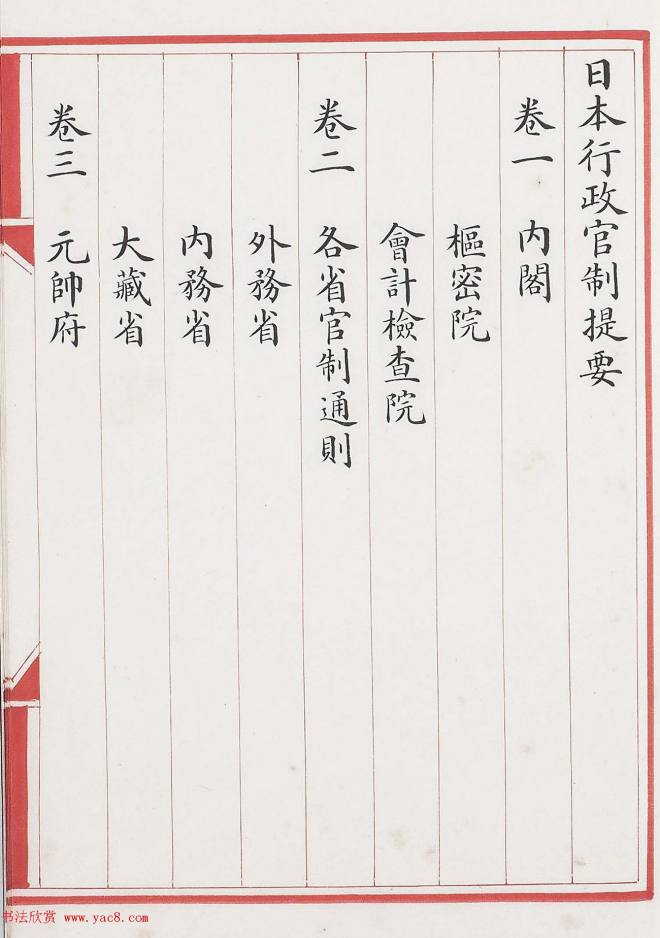 日本行政官制提要
卷一　內閣
樞密院
會計檢查院
卷二　各省官制通則
外務省
內務省
大藏省
卷三　元帥府
书法欣赏 www.yac8.com